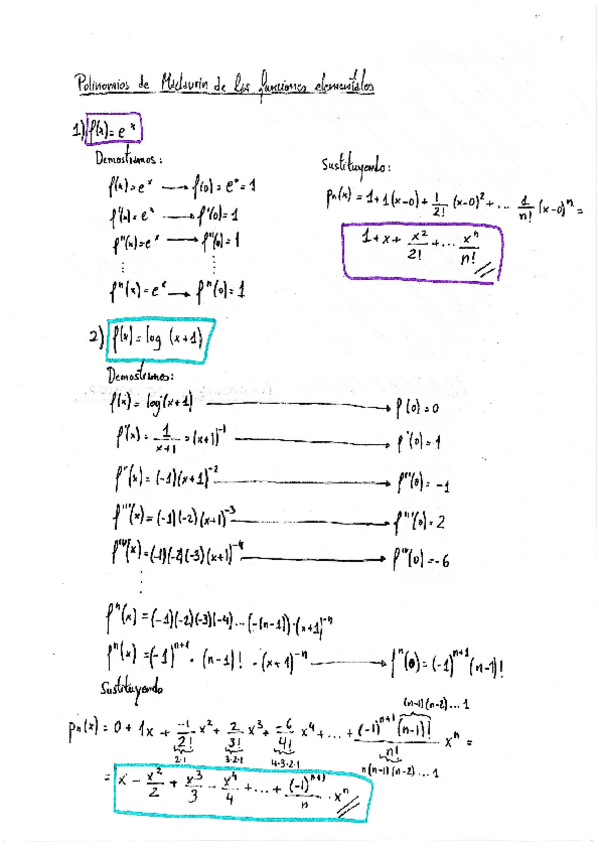 Polinomios de Maclaurin de las funciones elementales
1) f(x) = e^x
Demostramos:
f(x) = e^x → f(0) = e^0 = 1
f'(x) = e^x → f'(0) = 1
f''(x) = e^x → f''(0) = 1
⋮ ⋮
f^n(x) = e^x → f^n(0) = 1
Sustituyendo:
p_n(x) = 1 + 1(x-0) + 1/2! (x-0)^2 + ... 1/n! (x-0)^n =
1 + x + x^2/2! + ... x^n/n! //
2) f(x) = log (x+1)
Demostramos:
f(x) = log (x+1) → f(0) = 0
f'(x) = 1/(x+1) = (x+1)^-1 → f'(0) = 1
f''(x) = (-1)(x+1)^-2 → f''(0) = -1
f'''(x) = (-1)(-2)(x+1)^-3 → f'''(0) = 2
f''''(x) = (-1)(-2)(-3)(x+1)^-4 → f''''(0) = -6
⋮
f^n(x) = (-1)(-2)(-3)(-4)...(-(n-1))·(x+1)^-n
f^n(x) = (-1)^n+1 · (n-1)! · (x+1)^-n → f^n(0) = (-1)^n+1 (n-1)!
Sustituyendo
(n-1)(n-2)...1
p_n(x) = 0 + 1x + -1/2! x^2 + 2/3! x^3 + -6/4! x^4 + ... + (-1)^n+1 (n-1)!/n! x^n =
2·1 3·2·1 4·3·2·1 n(n-1)(n-2)...1
= x - x^2/2 + x^3/3 - x^4/4 + ... + (-1)^(n+1)/n · x^n //